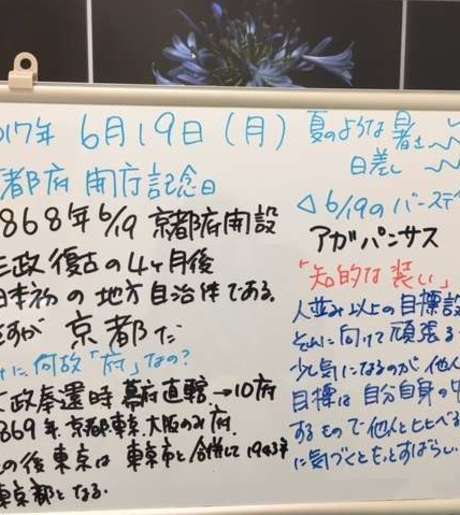 017年 6月19日(月)
都府 開庁記念日
868年6/19 京都府開設
政復古の4ヶ月後
日本初の地方自治体である。
すが 京都だ
に何故「府」なの?
政奉還時 幕府直轄→10府
869年 京都東京大阪のみ府.
の後東京は 東京市と合併して1943年
東京都となる.
夏のような暑さ
日差し
◁6/19のバースデ
アガパンサス
「知的な装い」
人並み以上の目標設
それに向けて頑張る
少し気になるのが他人
目標は自分自身の中
するもので他人とヒヒべる
に気づくともっとすばらしい